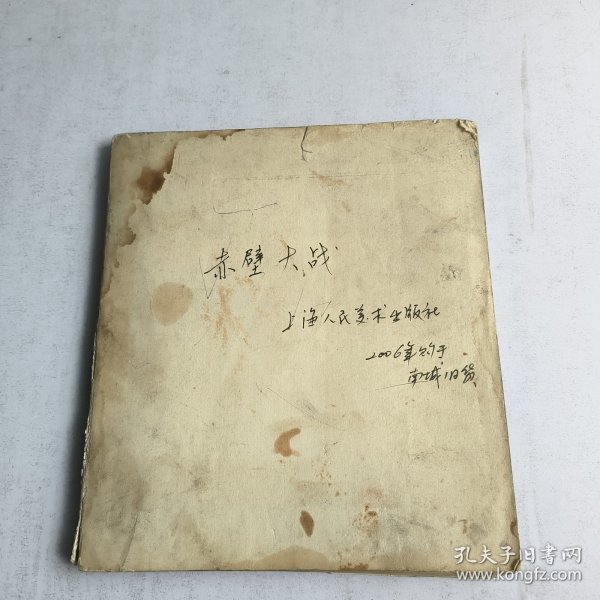 赤壁大战
上海人民美术出版社
2006年购于
南城旧货
孔夫子旧书网
www.kongfz.com